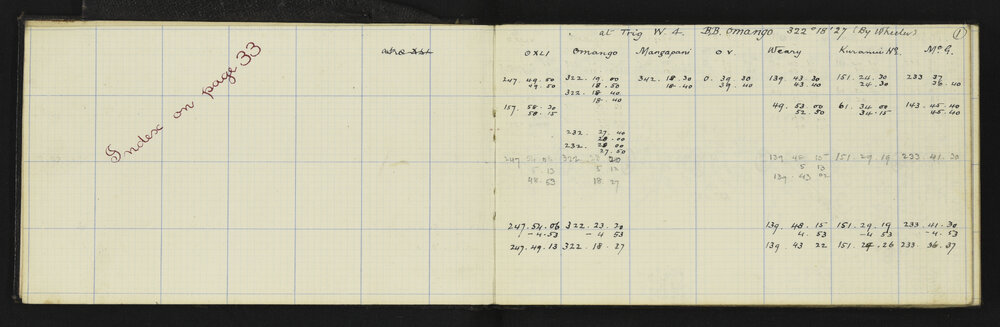 Index on page 33
at Trig W 4. BB. Omango 322° 18' 27 (By Wheeler) 1
OXLI Omango Mangapani OV Weary Kuranui No. McG.
247 49.50 322. 19. 00 342. 18. 30 0. 39. 30 139. 43 30 151. 24. 30 233 37
49. 50 18. 50 18. 40 39. 40 43 40 24. 30 36. 40
322. 18. 40
18. 40
157 58. 30 49. 53 00 61. 34 00 143. 45. 40
58. 15 52. 50 34. 15 45. 40
232. 27. 40
28. 00
232. 28 00
27. 50
247 54 06 322 23 20 139 48 15 151. 29 19 233. 41. 30
5. 13 5 13 5 13
48. 53 18. 27 139. 43 02
247. 54. 06 322. 23. 20 139. 48. 15 151. 29. 19 233. 41. 30
-4. 53 - 4 53 4. 53 -4 53 -4. 53
247. 49. 13 322. 18. 27 139. 43 22 151. 24. 26 233. 36. 37